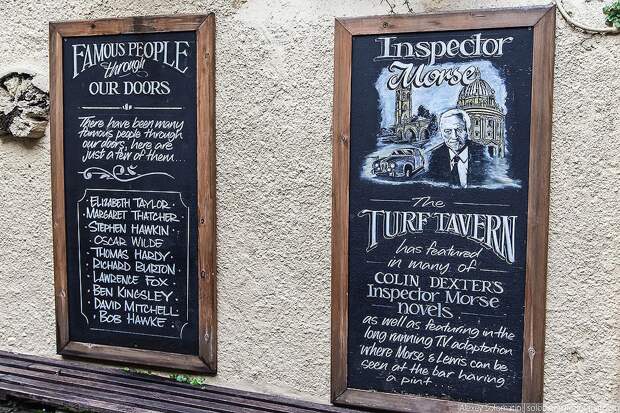 FAMOUS PEOPLE
through
OUR DOORS
There have been many
famous people through
our doors, here are
just a few of them...
• ELIZABETH TAYLOR •
• MARGARET THATCHER •
• STEPHEN HAWKIN •
• OSCAR WILDE •
• THOMAS HARDY •
• RICHARD BURTON •
• LAWRENCE FOX •
• BEN KINGSLEY •
• DAVID MITCHELL •
• BOB HAWKE •
Inspector
Morse
The
TURF TAVERN
has featured
in many of
COLIN DEXTERS
Inspector Morse
novels
as well as featuring in the
long running TV adaptation
where Morse & Lewis can be
seen at the bar having
a pint